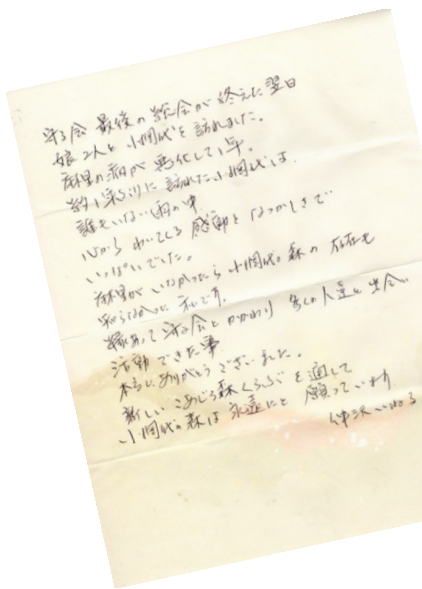 守る会 最後の総会が終えた翌日
娘2人と小網代を訪れました。
麻里の病が悪化して1年。
約1年ぶりに訪れた小網代は
誰もいない雨の中
心から わいてくる 感動と なつかしさで
いっぱいでした。
麻里がいなかったら小網代の森の存在も
知らなかった私です。
縁あって守る会とかかわり 多くの人達と出会い
活動できた事
本当にありがとうございました。
新しい こあじろ森くらぶを通して
小網代の森は永遠にと 願っています
仲沢